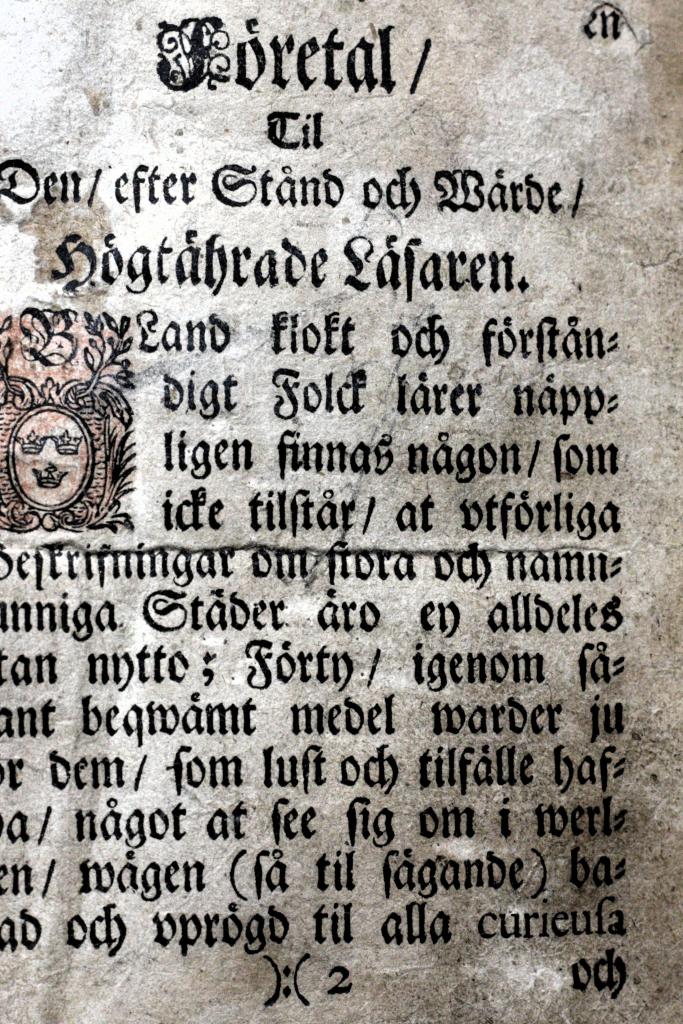 en
Företal/
Til
Den/ efter Stånd och Wärde/
Högtährade Läsaren.
BLand klokt och förstån=
digt Folck lärer näpp=
ligen finnas någon/ som
icke tilstår/ at vtförliga
Beskrifningar om stora och namn=
unniga Städer äro ey alldeles
tan nytto; Förty/ igenom så=
ant beqwämt medel warder ju
ör dem/ som lust och tilfälle haf=
a/ något at see sig om i werl=
en/ wägen (så til sägande) ba=
ad och vprögd til alla curieusa
):( 2 och